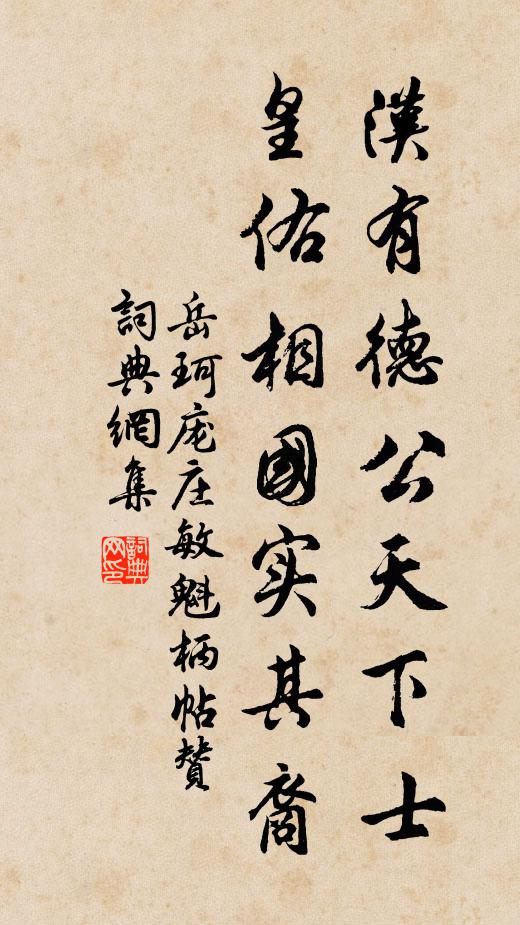 漢有德公天下士
皇佑相國实其裔
岳珂庞庄敏魁柄帖贊
詞典網集
詞典網印